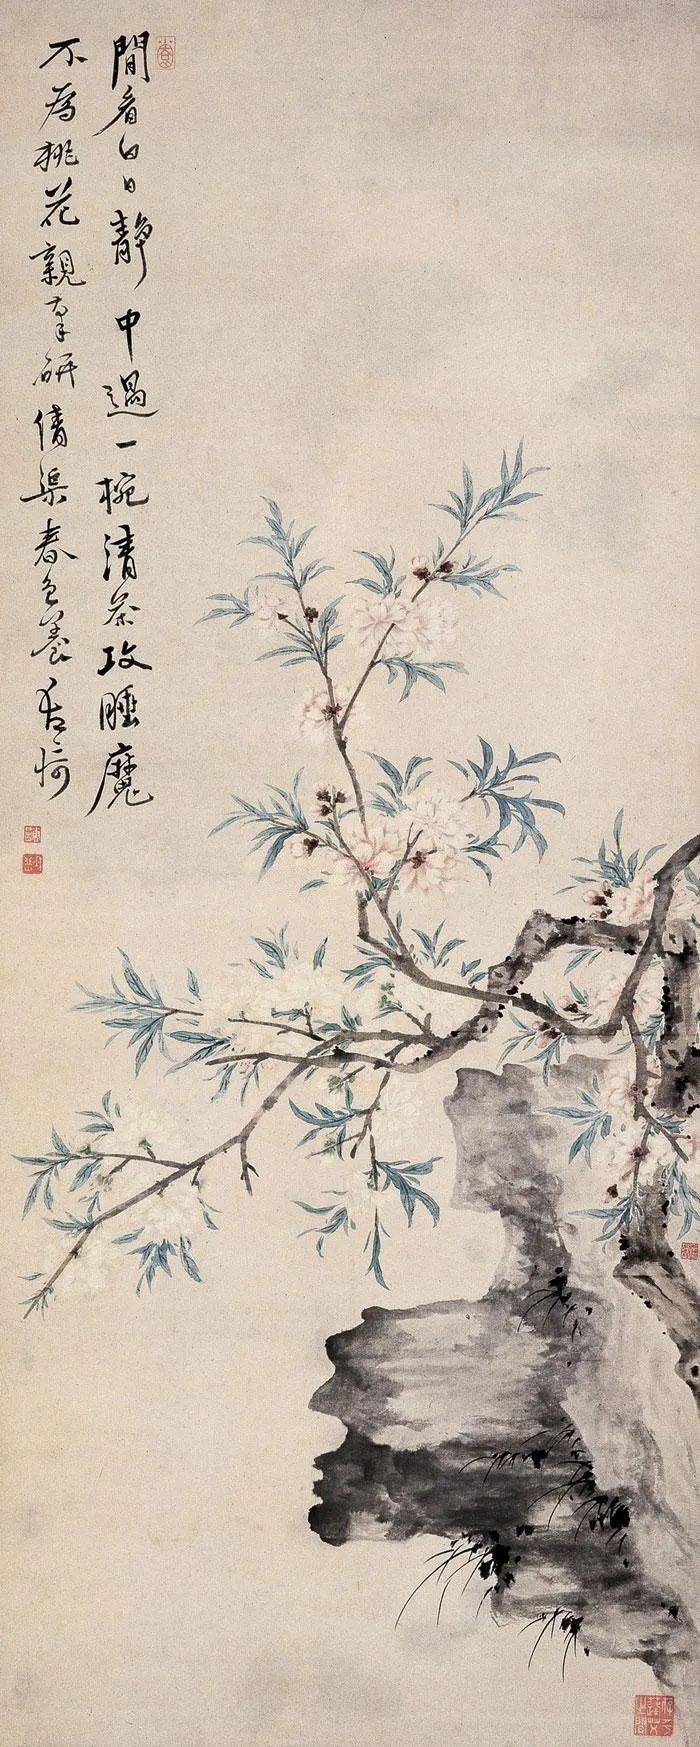 閒看白日靜中過一椀清茶攻睡魔
不為桃花親筆研倩渠春色養